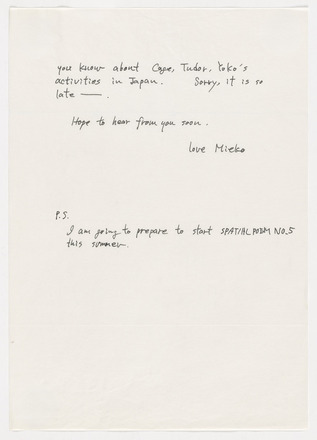 you know about Cage, Tudor, Yoko's
activities in Japan. Sorry, it is so
late —.
Hope to hear from you soon.
love Mieko
P.S.
I am going to prepare to start SPATIAL POEM NO.5
this summer.